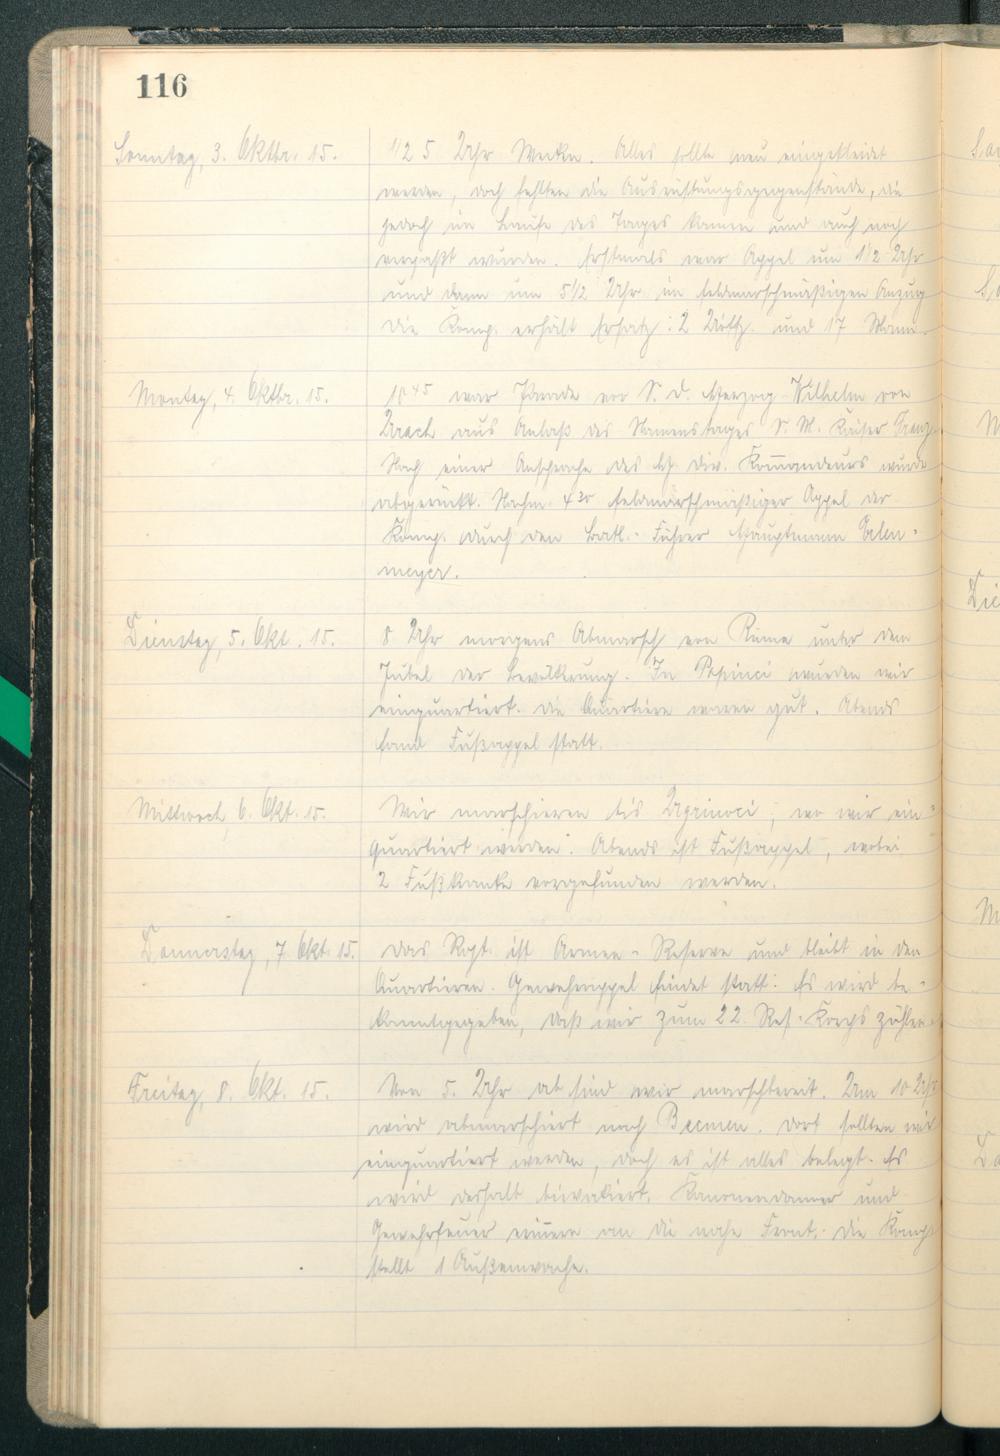 116
Sonntag, 3. Oktbr. 15. 1/2 5 Uhr Wecken. Alles sollte neu eingekleidet
werden, doch fehlten die Ausrüstungsgegenstände, die
jedoch im Laufe des Tages kamen und auch noch
verpaßt wurden. Erstmals war Appel um 1 1/2 Uhr
und dann um 5 1/2 Uhr im feldmarschmäßigen Anzug
die Komp. erhält Ersatz: 2 Uoffz. und 17 Mann.
Montag, 4. Oktbr. 15. 10 45 war Parade vor S. D. Herzog Wilhelm von
Urach aus Anlaß des Namenstages S. M. Kaiser Franz
Nach einer Ansprache des H. Div. Kom̅andeurs wurde
abgerückt. Nachm. 4 30 feldmarschmäßiger Appel der
Komp. durch den Batl.-Führer Hauptmann
meyer.
Dienstag, 5. Okt. 15. 8 Uhr morgens Abmarsch von Ruma unter dem
Jubel der Bevölkerung. In Popinci wurden wir
einquartiert. die Quartiere waren gut. Abends
fand Fußappel statt.
Mittwoch, 6. Okt. 15. Wir marschieren bis Ugrinovci, wo wir ein-
quartiert werden. Abends ist Fußappel, wobei
2 Fußkranke vorgefunden werden.
Donnerstag, 7. Okt. 15. das Rgt. ist Armee-Reserve und bleibt in den
Quartieren. Gewehrappel findet statt. Es wird be-
kanntgegeben, daß wir zum 22. Res.-Korps zählen.
Freitag, 8. Okt. 15. Von 5. Uhr ab sind wir marschbereit. Um 10 Uhr
wird abmarschiert nach Becmen. dort sollten wir
einquartiert werden, doch es ist alles belegt. Es
wird deshalb biwakiert. Kanonendonner und
Gewehrfeuer erin̅ern an die nahe Front. die Komp.
stellt 1 Außenwache.